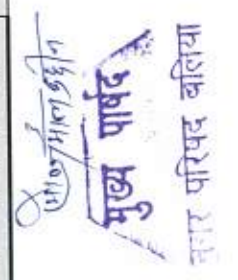 मुख्य पार्षद
नगर परिषद बलिया